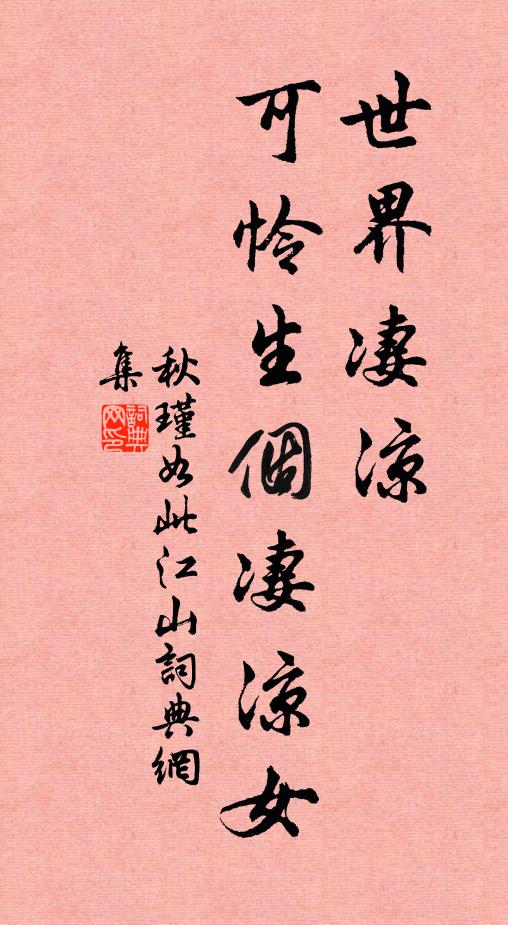 世界凄涼
可憐生個凄涼女
秋瑾如此江山詞典網
集
詞典网印